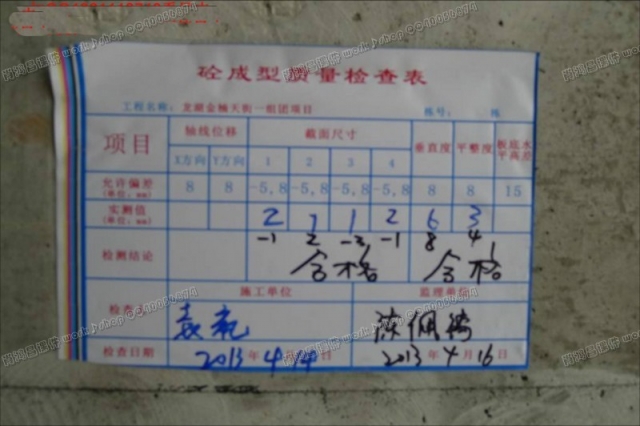 砼成型质量检查表
工程名称： 龙湖金楠天街一组团项目 栋号： 栋
项目 轴线位移 截面尺寸 垂直度 平整度 板底水平高差
X方向 Y方向 1 2 3 4
允许偏差（单位：mm） 8 8 -5,8 -5,8 -5,8 -5,8 8 8 15
实测值（单位：mm） 2 1 1 2 6 3
-1 2 -3 -1 8 4
检测结论 合格 合格
施工单位 监理单位
检查人
检查日期 2013年4月14日 2013年4月16日